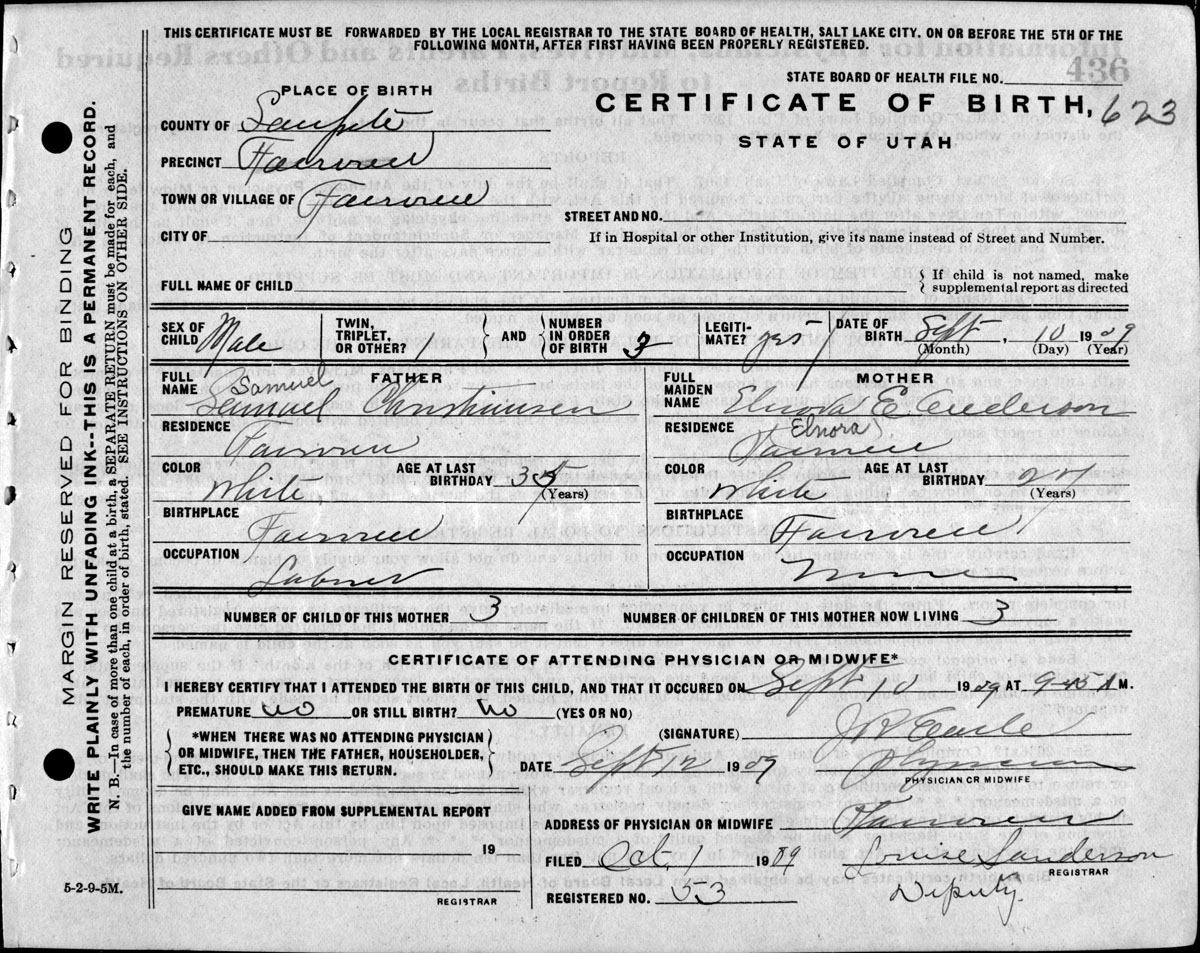 THIS CERTIFICATE MUST BE FORWARDED BY THE LOCAL REGISTRAR TO THE STATE BOARD OF HEALTH, SALT LAKE CITY. ON OR BEFORE THE 5TH OF THE
FOLLOWING MONTH, AFTER FIRST HAVING BEEN PROPERLY REGISTERED.
STATE BOARD OF HEALTH FILE NO. 436
PLACE OF BIRTH
CERTIFICATE OF BIRTH, 623
STATE OF UTAH
COUNTY OF Sanpete
PRECINCT Fairview
TOWN OR VILLAGE OF Fairview
STREET AND NO.
CITY OF
If in Hospital or other Institution, give its name instead of Street and Number.
FULL NAME OF CHILD
{ If child is not named, make
supplemental report as directed
SEX OF CHILD Male
TWIN, TRIPLET, OR OTHER? 1
AND
NUMBER IN ORDER OF BIRTH 3
LEGITIMATE? yes
DATE OF BIRTH Sept, 10 1909
(Month) (Day) (Year)
FULL NAME
FATHER
Samuel
Samuel Christiansen
RESIDENCE
Fairview
COLOR
White
AGE AT LAST BIRTHDAY 35
(Years)
BIRTHPLACE
Fairview
OCCUPATION
Laborer
FULL MAIDEN NAME
MOTHER
Elnora E. Anderson
RESIDENCE
(Elnora)
Fairview
COLOR
White
AGE AT LAST BIRTHDAY 27
(Years)
BIRTHPLACE
Fairview
OCCUPATION
None
NUMBER OF CHILD OF THIS MOTHER 3
NUMBER OF CHILDREN OF THIS MOTHER NOW LIVING 3
CERTIFICATE OF ATTENDING PHYSICIAN OR MIDWIFE*
I HEREBY CERTIFY THAT I ATTENDED THE BIRTH OF THIS CHILD, AND THAT IT OCCURED ON Sept 10 1909 AT 9-45 A M.
PREMATURE No OR STILL BIRTH? No (YES OR NO)
(SIGNATURE)
*WHEN THERE WAS NO ATTENDING PHYSICIAN
OR MIDWIFE, THEN THE FATHER, HOUSEHOLDER,
ETC., SHOULD MAKE THIS RETURN.
DATE Sept 12 1909
Physician
PHYSICIAN OR MIDWIFE
GIVE NAME ADDED FROM SUPPLEMENTAL REPORT
19
REGISTRAR
ADDRESS OF PHYSICIAN OR MIDWIFE Fairview
FILED Oct, 1 1909
Louise Sanderson
REGISTRAR
REGISTERED NO. 53
Deputy.
5-2-9-5M.
MARGIN RESERVED FOR BINDING
WRITE PLAINLY WITH UNFADING INK--THIS IS A PERMANENT RECORD.
N. B.—In case of more than one child at a birth, a SEPARATE RETURN must be made for each, and
the number of each, in order of birth, stated. SEE INSTRUCTIONS ON OTHER SIDE.